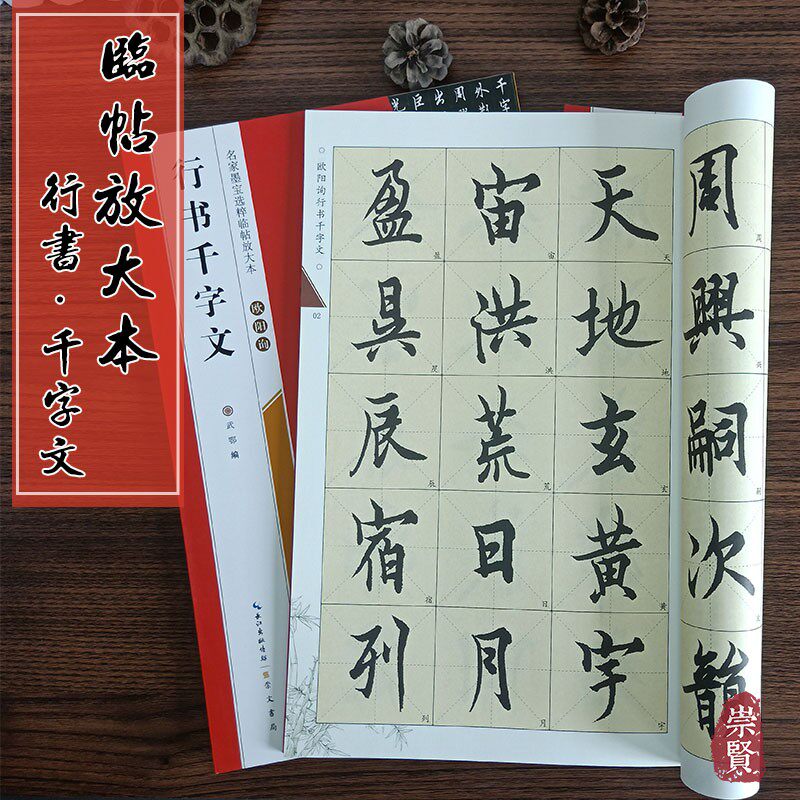 臨帖放大本
行書·千字文
名家墨宝选粹临帖放大本
欧阳询
行书千字文
武鄂 编
长江出版传媒
崇文书局
周興嗣次韻
天地玄黄宇
天地玄黄宇
宙洪荒日月
宙洪荒日月
盈昃辰宿列
盈昃辰宿列
欧阳询行书千字文
02
千字
周
出
巨
光
崇賢